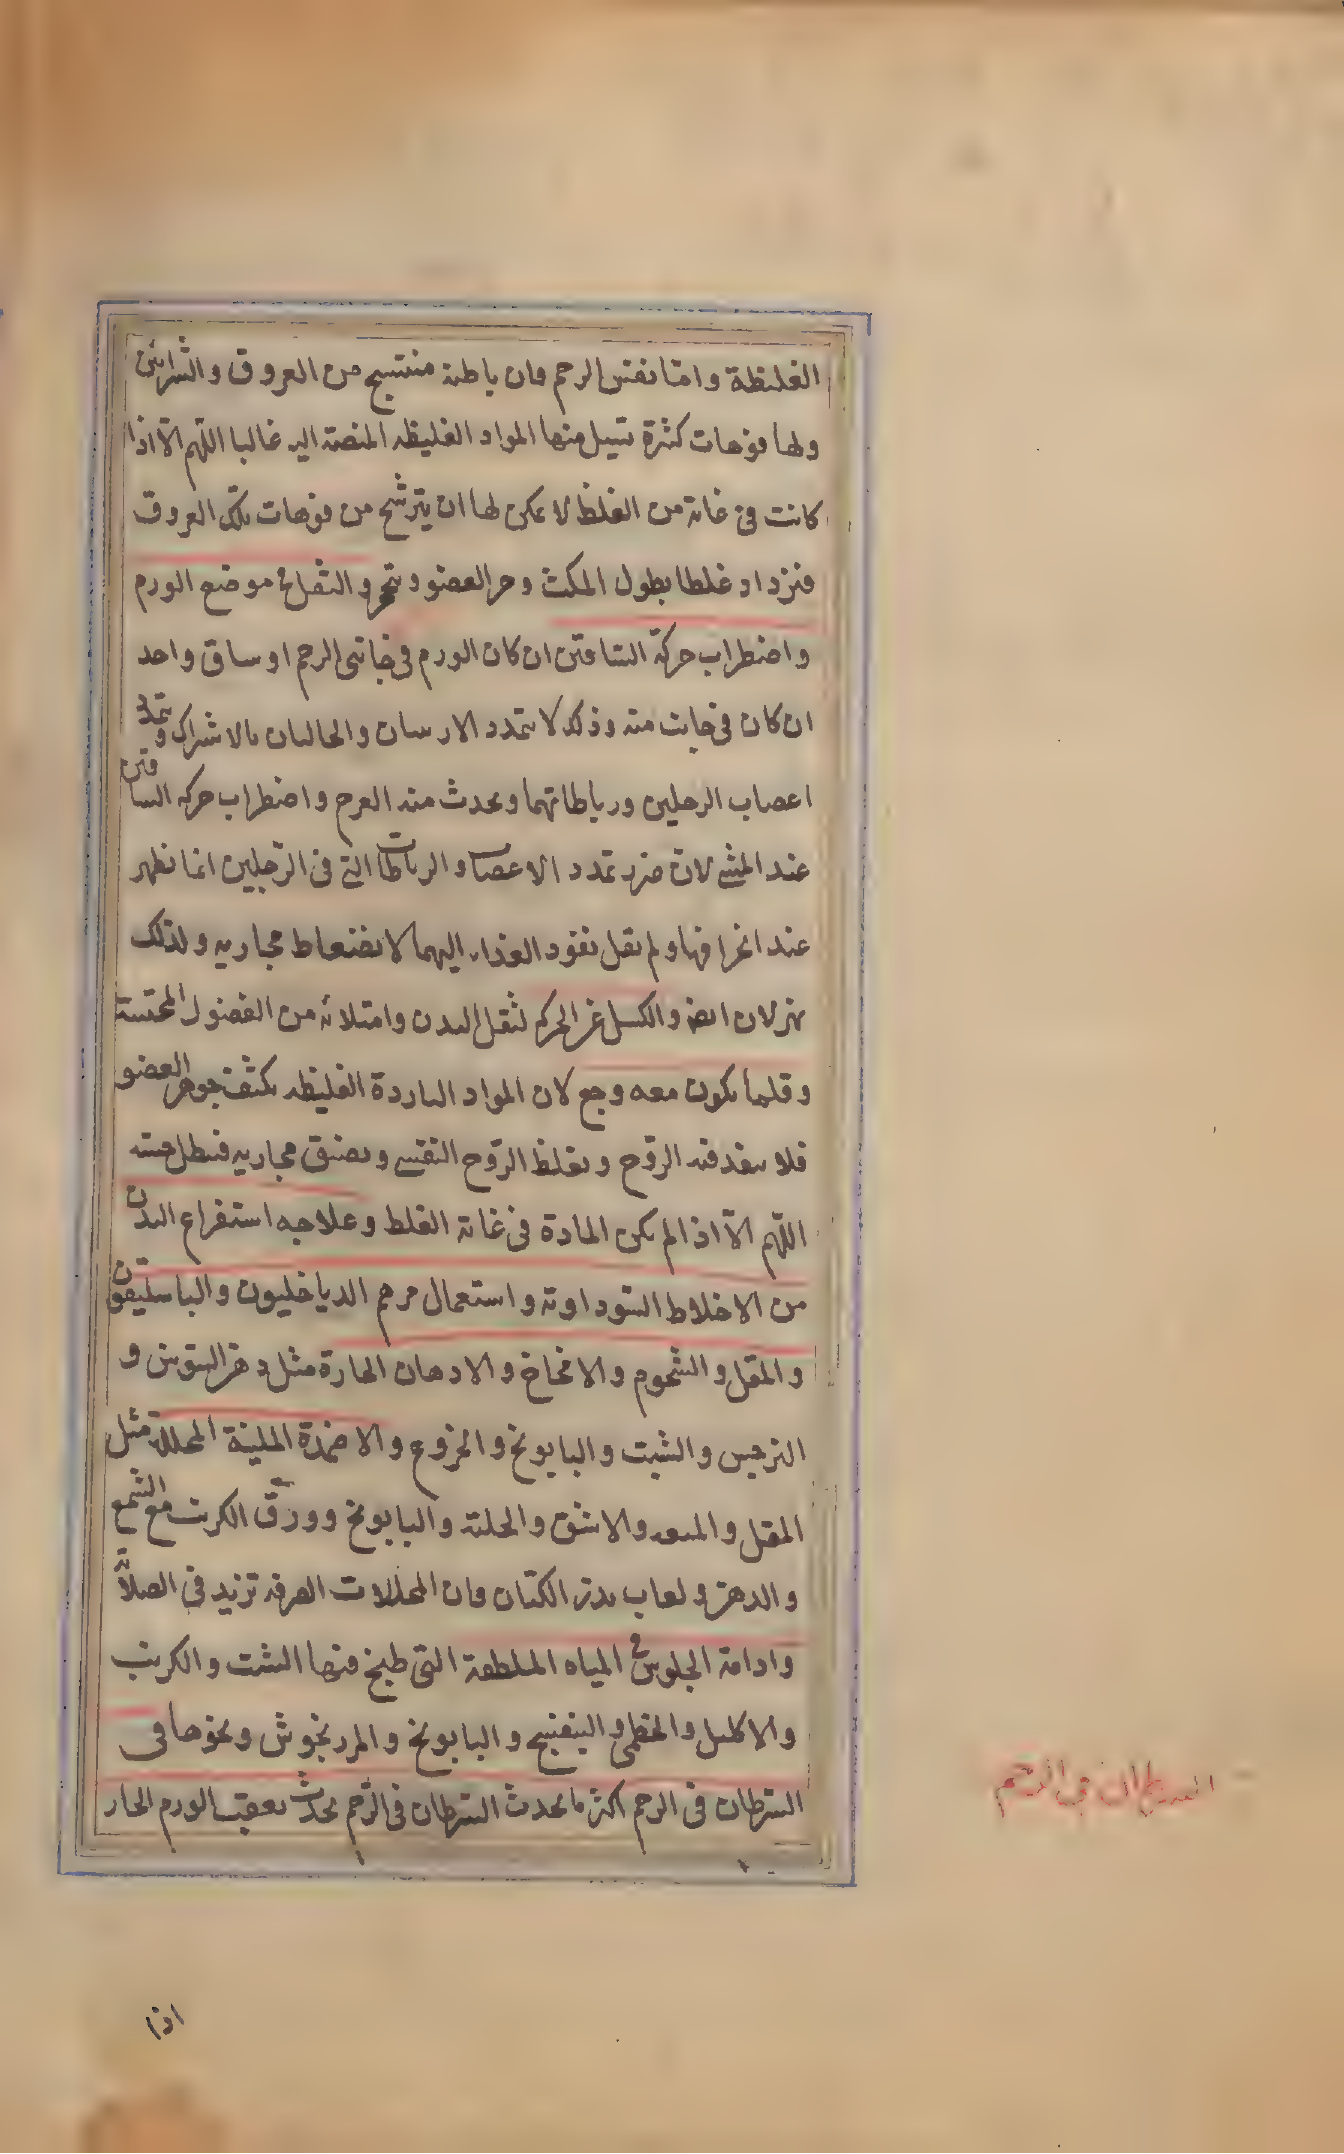 الغليظة واما نفس الرحم فان باطنه منتسج من العروق والشرائين
ولها فوهات كثيرة تسيل منها المواد الغليظه المنصبة اليه غالبا اللهم الا اذا
كانت فى غاية من الغلظ لا يمكن لها ان يترشح من فوهات تلك العروق
فيزداد غلظا بطول المكث وحر العضو والثقل فى موضع الورم
واضطراب حركة الساقين ان كان الورم فى جانبى الرحم او ساق واحد
ان كان فى جانب منه وذلك لا يتمدد الاربيتان والحالبان بالاشتراك ويتمدد
اعصاب الرجلين ورباطاتهما ويحدث منه العرج واضطراب حركة الساقين
عند المشى لان ضرر تمدد الاعصاب والرباطات التى فى الرجلين انما يظهر
عند انحرافها ولم يقل نفوذ الغذاء اليهما لانضغاط مجاريه ولذلك
يهزلان ايضا والكسل عن الحركة لثقل البدن وامتلائه من الفضول المحتبسة
وقلما يكون معه وجع لان المواد الباردة الغليظه يكثف جوهر العضو
فلا ينفذ فيه الروح ويغلظ الروح النفسى ويضيق مجاريه فيبطل حسه
اللهم الا اذا لم يكن المادة فى غاية الغلظ وعلاجه استفراغ البدن
من الاخلاط السوداوية واستعمال مرهم الدياخليون والباسليقون
والمقل والشحوم والامخاخ والادهان الحارة مثل دهن السوسن و
النرجس والشبت والبابونج والخروع والاضمدة الملينة المحللة مثل
المقل والميعه والاشق والحلبة والبابونج وورق الكرنب مع الشمع
والدهن ولعاب بذر الكتان فان المحللات الصرفه تزيد فى الصلابة
وادامة الجلوس فى المياه الملطفة التى طبخ فيها الشبت والكرنب
والاكليل والخطمى والبنفسج والبابونج والمرزنجوش ونحوها فى
السرطان فى الرحم اكثر ما يحدث السرطان فى الرحم يحدث بعقب الورم الحار
السرطان فى الرحم
اذا